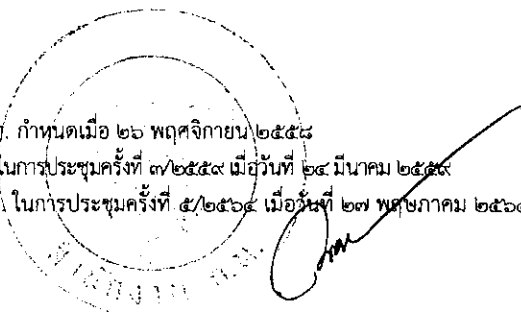 . กำหนดเมื่อ ๒๖ พฤศจิกายน ๒๕๕๘
ในการประชุมครั้งที่ ๓/๒๕๕๙ เมื่อวันที่ ๒๔ มีนาคม ๒๕๕๙
. ในการประชุมครั้งที่ ๕/๒๕๖๔ เมื่อวันที่ ๒๗ พฤษภาคม ๒๕๖๔
สำนักงาน ก.พ.